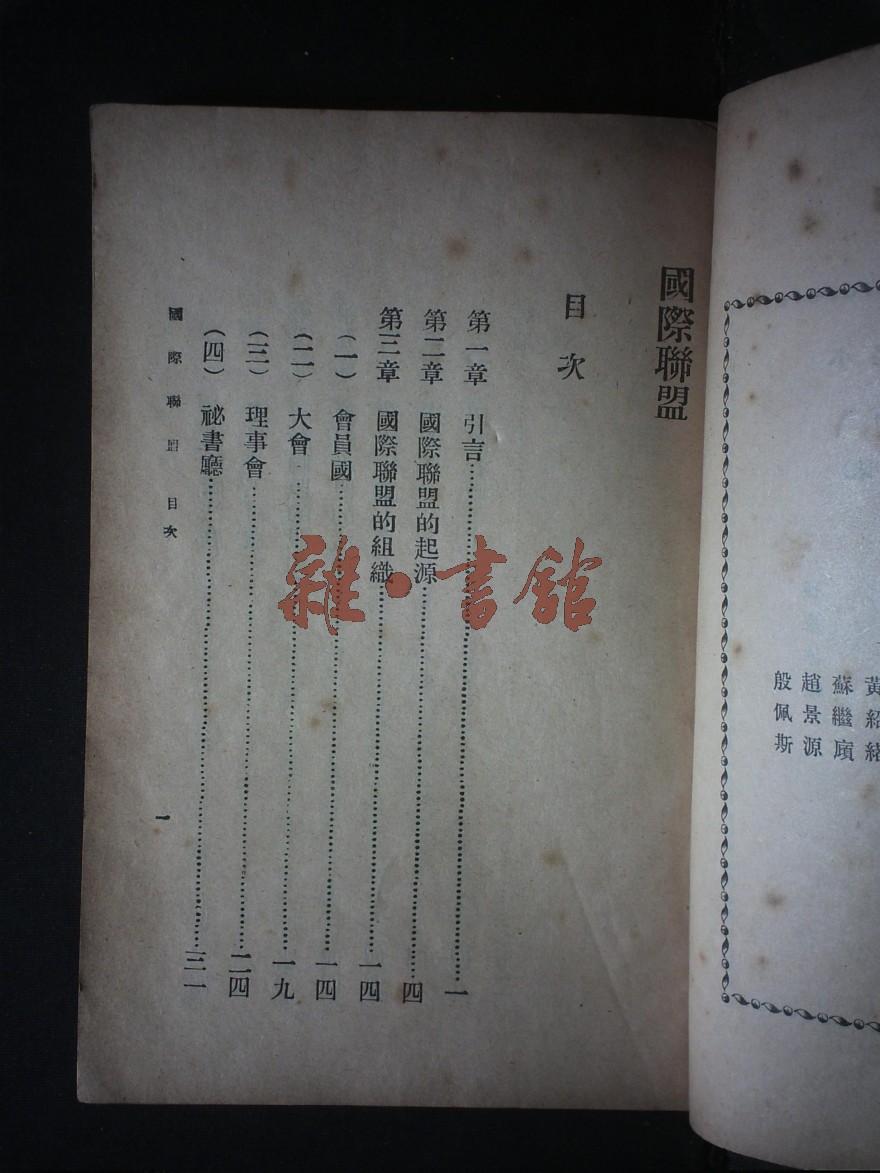 國際聯盟
目次
第一章 引言……一
第二章 國際聯盟的起源……四
第三章 國際聯盟的組織……一四
(一) 會員國……一四
(二) 大會……一九
(三) 理事會……二四
(四) 祕書廳……三一
國際聯盟 目次
一
蘇繼廎
趙景源
殷佩斯
雜·書館